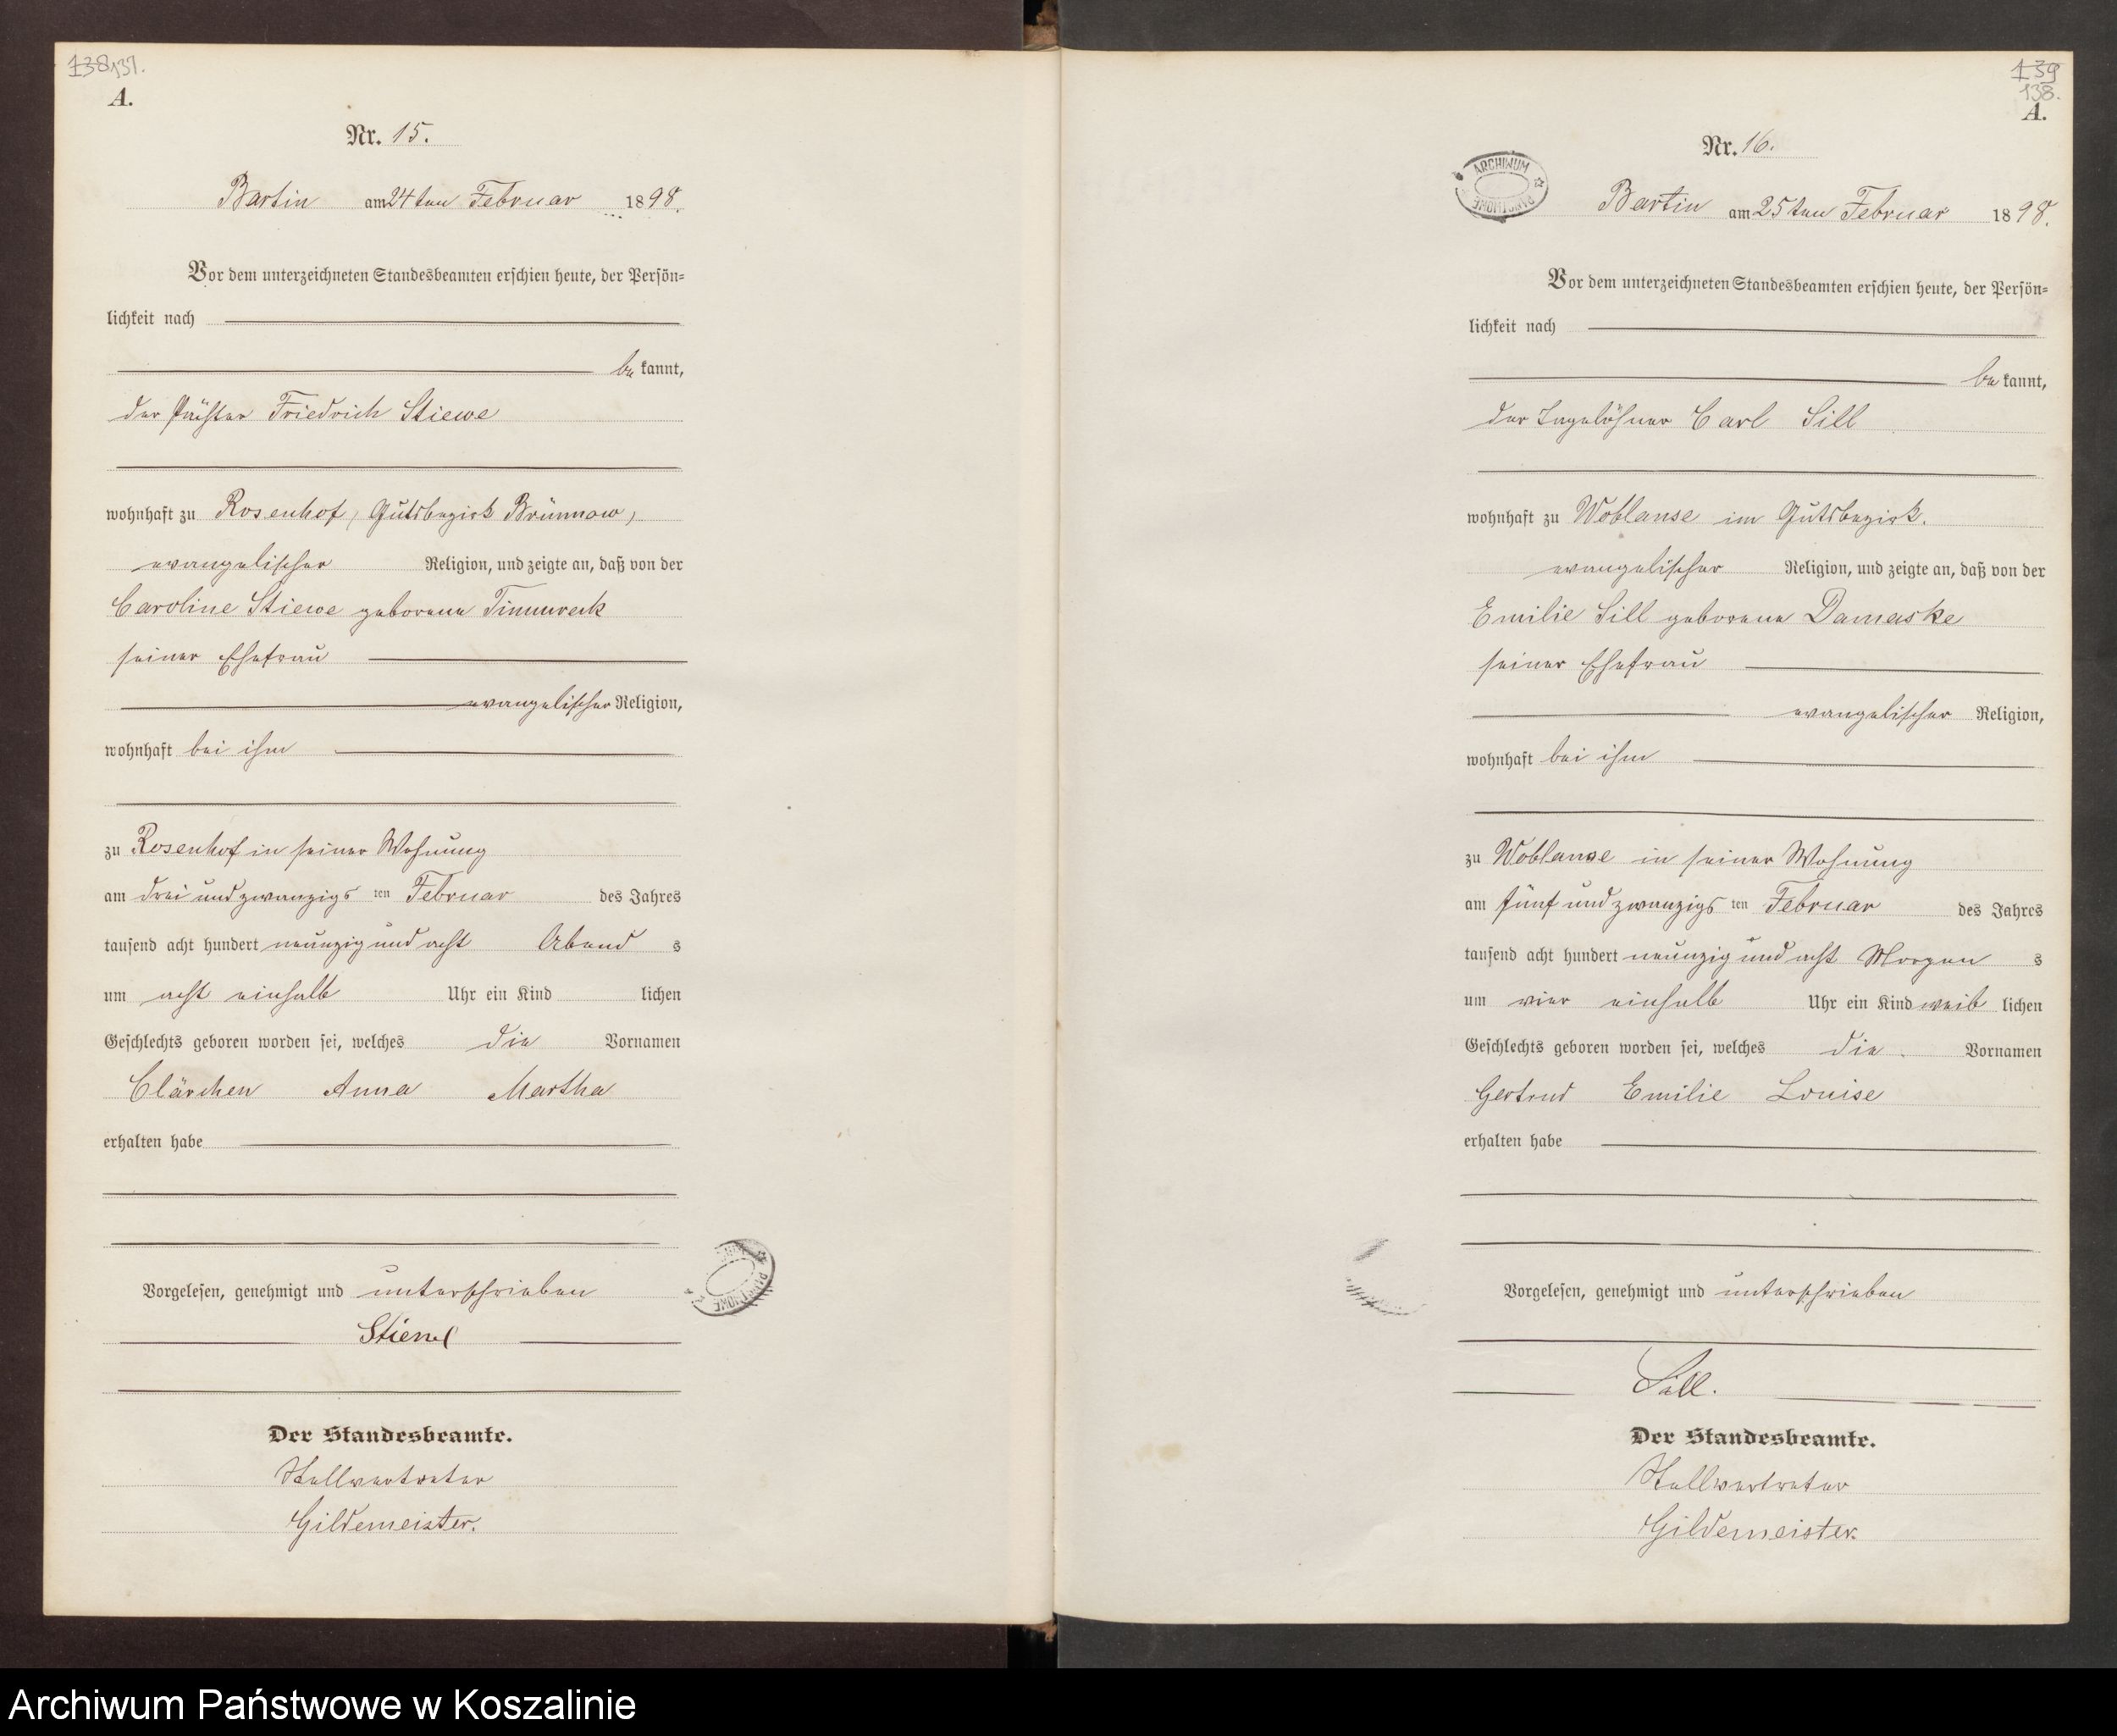 138 137.
A.
Nr. 15.
Bartin am 24ten Februar 1898.
Vor dem unterzeichneten Standesbeamten erschien heute, der Persön-
lichkeit nach
be kannt,
der Pächter Friedrich Stiewe
wohnhaft zu Rosenhof, Gutsbezirk Brünnow,
evangelischer Religion, und zeigte an, daß von der
Caroline Stiewe geborene Timmreck
seiner Ehefrau
evangelischer Religion,
wohnhaft bei ihm
zu Rosenhof in seiner Wohnung
am drei und zwanzigsten Februar des Jahres
tausend acht hundert neunzig und acht Abend s
um acht einhalb Uhr ein Kind lichen
Geschlechts geboren worden sei, welches die Vornamen
Clärchen Anna Martha
erhalten habe
Vorgelesen, genehmigt und unterschrieben
Der Standesbeamte.
Stellvertreter
Gildemeister.
139
138.
A.
Nr. 16.
ARCHIWUM PAŃSTWOWE
Bartin am 25ten Februar 1898.
Vor dem unterzeichneten Standesbeamten erschien heute, der Persön-
lichkeit nach
be kannt,
der Tagelöhner Carl Sill
wohnhaft zu Woblanse im Gutsbezirk.
evangelischer Religion, und zeigte an, daß von der
Emilie Sill geborene Damaske
seiner Ehefrau
evangelischer Religion,
wohnhaft bei ihm
zu Woblanse in seiner Wohnung
am fünf und zwanzigsten Februar des Jahres
tausend acht hundert neunzig und acht Morgen s
um vier einhalb Uhr ein Kind weib lichen
Geschlechts geboren worden sei, welches die Vornamen
Gertrud Emilie Louise
erhalten habe
Vorgelesen, genehmigt und unterschrieben
Sill.
Der Standesbeamte.
Stellvertreter
Gildemeister.
Archiwum Państwowe w Koszalinie